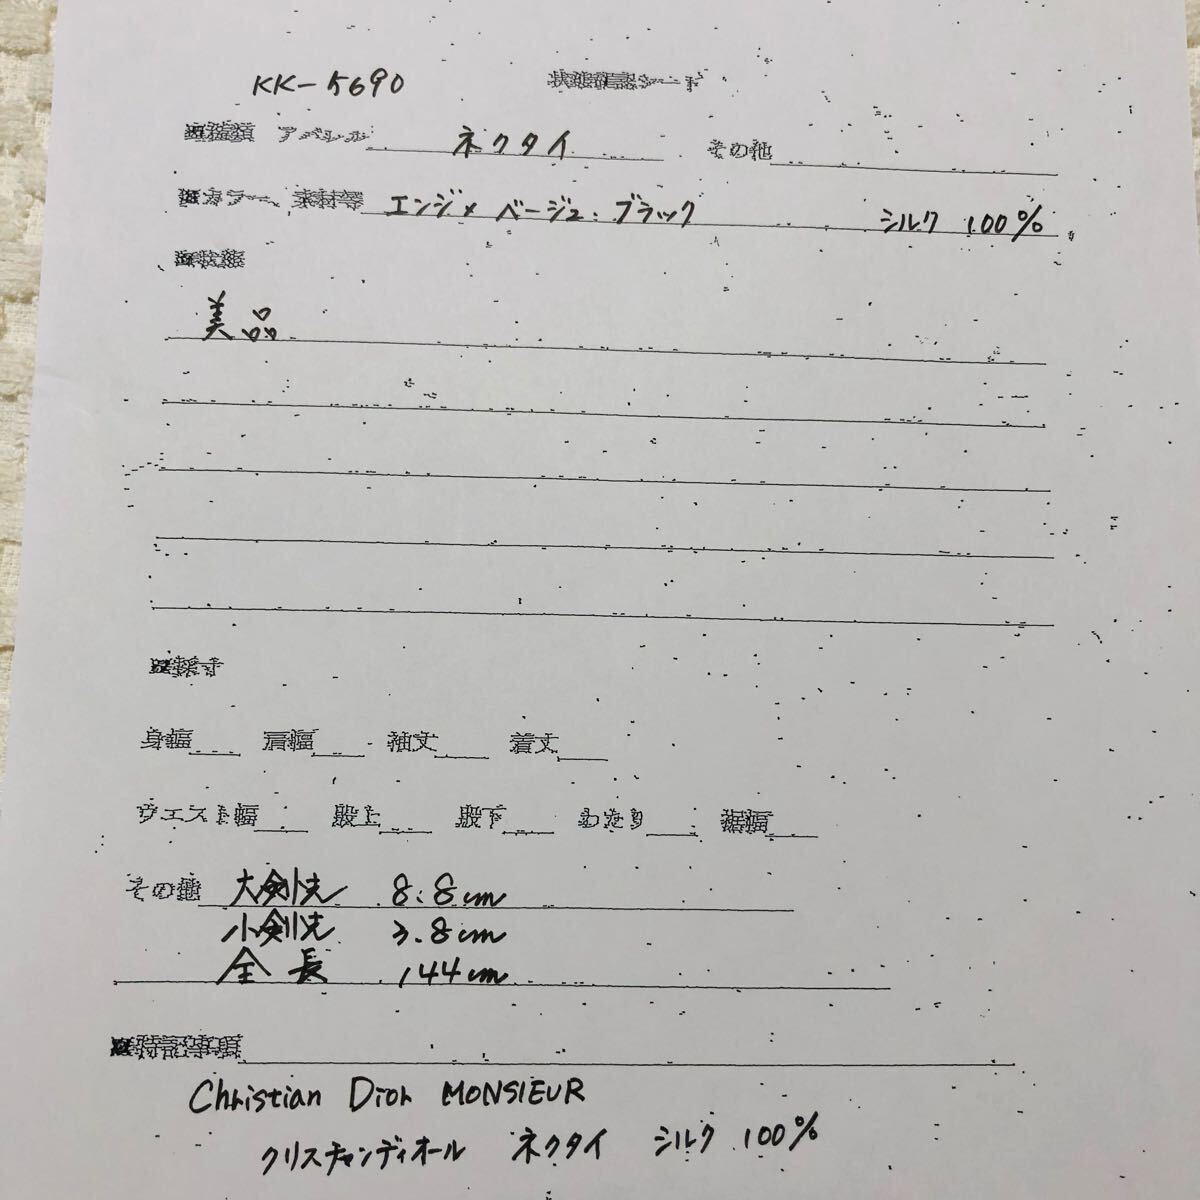 KK-5690 状態確認シート
■種類 アパレル ネクタイ その他
■カラー、素材等 エンジ× ベージュ.ブラック シルク 100%
■状態
美品
■採寸
身幅 肩幅 袖丈 着丈
ウエスト幅 股上 股下 わたり 裾幅
その他 大剣先 8.8cm
小剣先 3.8cm
全長 144cm
■特記事項
Christian Dior MONSIEUR
クリスチャンディオール ネクタイ シルク 100%